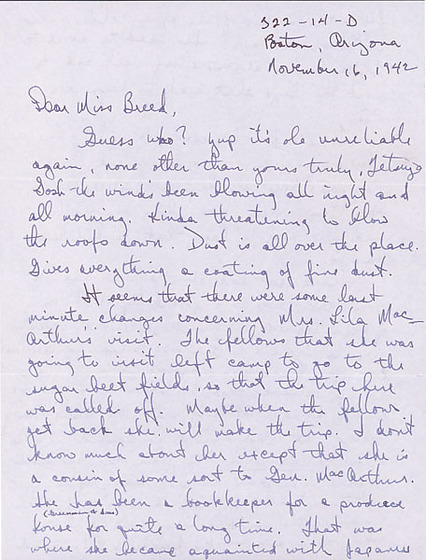 322-14-D
Poston, Arizona
November 16, 1942
Dear Miss Breed,
Guess who? yup it's ole unreliable
again, none other than yours truly, Tetsuzo
Gosh the winds been blowing all night and
all morning. Kinda threatening to blow
the roofs down. Dust is all over the place.
Gives everything a coating of fine dust.
It seems that there were some last
minute changes concerning Mrs. Lila Mac-
Arthur's visit. The fellows that she was
going to visit left camp to go to the
sugar beet fields, so that the trip here
was called off. Maybe when the fellows
get back she will make the trip. I don't
know much about her except that she is
a cousin of some sort to Gen. MacArthur.
She has been a bookkeeper for a produce
house for quite a long time. That was
where she became aquainted with Japanese